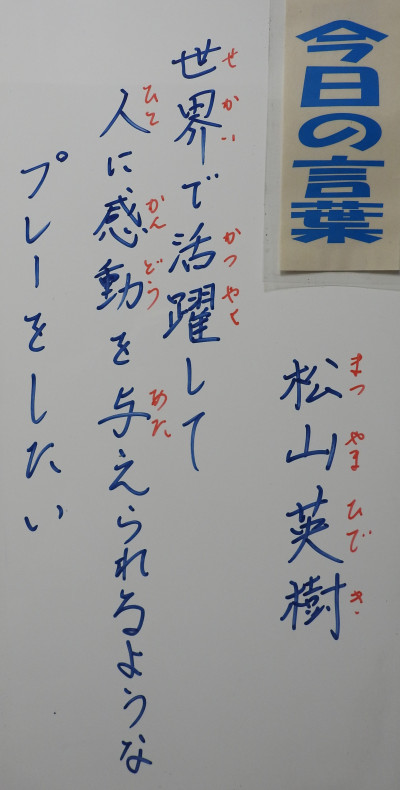 今日の言葉
松山英樹
まつやまひでき
世界で活躍して
せかいかつやく
人に感動を与えられるような
ひとかんどうあた
プレーをしたい